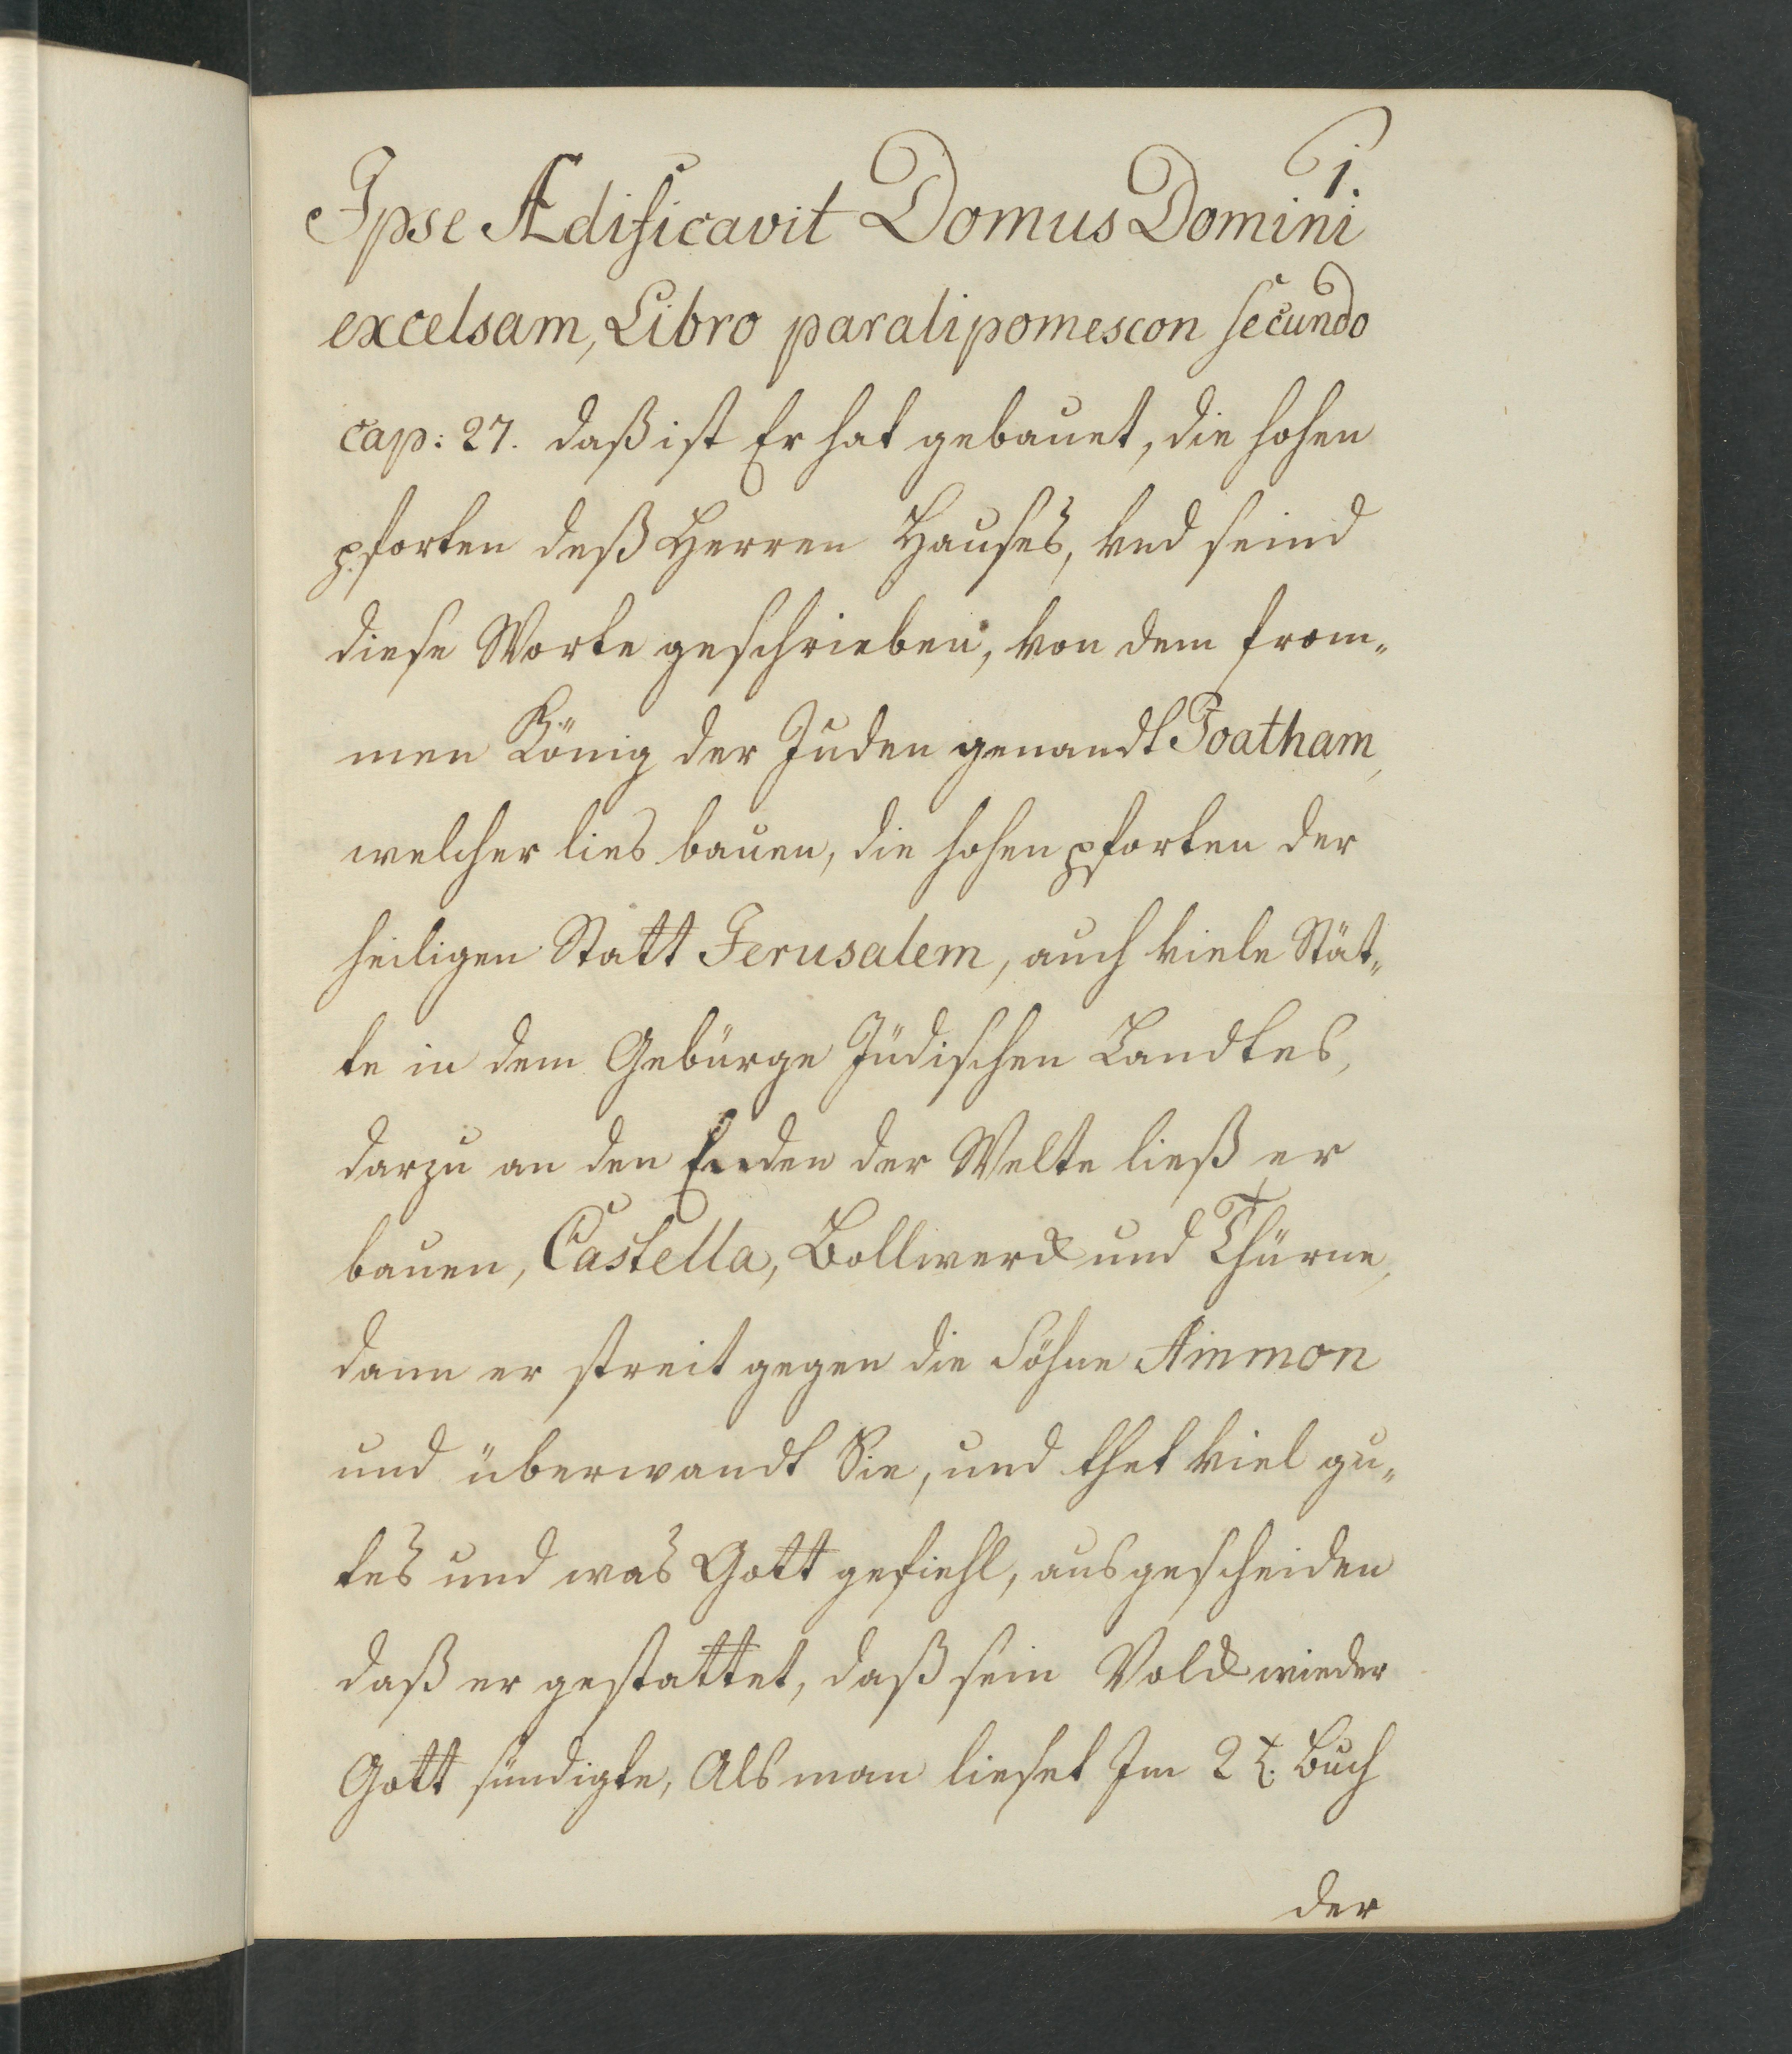 1.
Ipse Ædificavit Domus Domini
excelsam, Libro paralipomescon secundo
cap: 27. daß ist Er hat gebauet, die hohen
pforten deß Herren Hauses, vnd seind
diese Worte geschrieben, von dem from„
men König der Juden genandt Joatham,
welcher lies bauen, die hohen pforten der
heiligen Statt Jerusalem, auch viele Stät„
te in dem Gebürge Jüdischen Landtes,
darzu an den Enden der Welte ließ er
bauen, Castella, Bollwerck und Thürne,
dann er streit gegen die Söhne Ammon
und überwandt Sie, und thet viel gu„
tes und was Gott gefiehl, ausgescheiden
daß er gestattet, daß sein Volck wieder
Gott sündigte, Als man lieset Im 2t. Buch
der